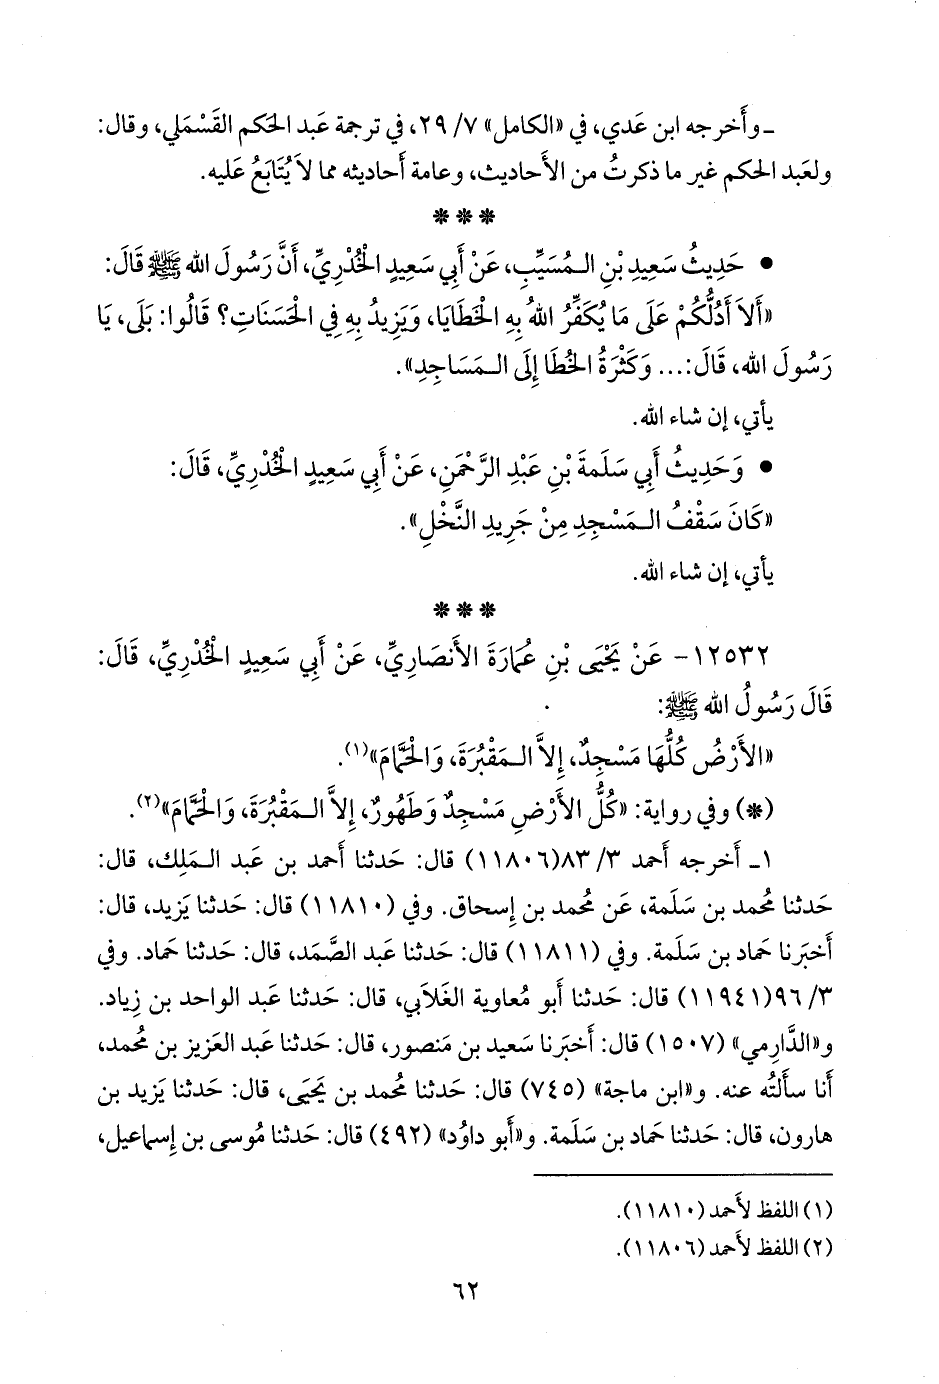 ـ وأَخرجه ابن عَدي، في «الكامل» ٧/ ٢٩، في ترجمة عَبد الحكم القَسْمَلي، وقال:
ولعَبد الحكم غير ما ذكرتُ من الأَحاديث، وعامة أَحاديثه مما لاَ يُتَابَعُ عَليه.
***
• حَدِيثُ سَعِيدِ بْنِ الـمُسَيِّبِ، عَنْ أَبِي سَعِيدٍ الْخُدْرِيِّ، أَنَّ رَسُولَ الله ﷺ قَالَ:
«أَلاَ أَدُلُّكُمْ عَلَى مَا يُكَفِّرُ اللهُ بِهِ الْخَطَايَا، وَيَزِيدُ بِهِ فِي الْحَسَنَاتِ؟ قَالُوا: بَلَى، يَا
رَسُولَ الله، قَالَ:... وَكَثْرَةُ الْخُطَا إِلَى الـمَسَاجِدِ».
يأتي، إن شاء الله.
• وَحَدِيثُ أَبِي سَلَمَةَ بْنِ عَبْدِ الرَّحْمَنِ، عَنْ أَبِي سَعِيدٍ الْخُدْرِيِّ، قَالَ:
«كَانَ سَقْفُ الـمَسْجِدِ مِنْ جَرِيدِ النَّخْلِ».
يأتي، إن شاء الله.
***
١٢٥٣٢- عَنْ يَحْيَى بْنِ عُمَارَةَ الأَنصَارِيِّ، عَنْ أَبِي سَعِيدٍ الْخُدْرِيِّ، قَالَ:
قَالَ رَسُولُ الله ﷺ:
«الأَرْضُ كُلُّهَا مَسْجِدٌ، إِلاَّ الـمَقْبُرَةَ، وَالْحَمَّامَ»(١).
(*) وفي رواية: «كُلُّ الأَرْضِ مَسْجِدٌ وَطَهُورٌ، إِلاَّ الـمَقْبُرَةَ، وَالْحَمَّامَ»(٢).
١ـ أَخرجه أَحمد ٣/ ٨٣(١١٨٠٦) قال: حَدثنا أَحمد بن عَبد الـمَلِك، قال:
حَدثنا مُحمد بن سَلَمة، عَن مُحمد بن إِسحاق. وفي (١١٨١٠) قال: حَدثنا يَزيد، قال:
أَخبَرنا حَماد بن سَلَمة. وفي (١١٨١١) قال: حَدثنا عَبد الصَّمَد، قال: حَدثنا حَماد. وفي
٣/ ٩٦(١١٩٤١) قال: حَدثنا أَبو مُعاوية الغَلاَبي، قال: حَدثنا عَبد الواحد بن زِياد.
و«الدَّارِمي» (١٥٠٧) قال: أَخبَرنا سَعيد بن مَنصور، قال: حَدثنا عَبد العَزيز بن مُحمد،
أَنا سأَلتُه عنه. و«ابن ماجة» (٧٤٥) قال: حَدثنا مُحمد بن يَحيَى، قال: حَدثنا يَزيد بن
هارون، قال: حَدثنا حَماد بن سَلَمة. و«أَبو داوُد» (٤٩٢) قال: حَدثنا مُوسى بن إِسماعيل،
(١) اللفظ لأَحمد (١١٨١٠).
(٢) اللفظ لأَحمد (١١٨٠٦).
٦٢